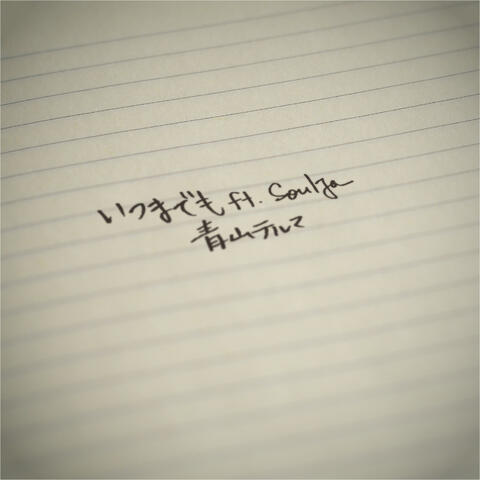 いつまでも ft. Soulja
青山テルマ